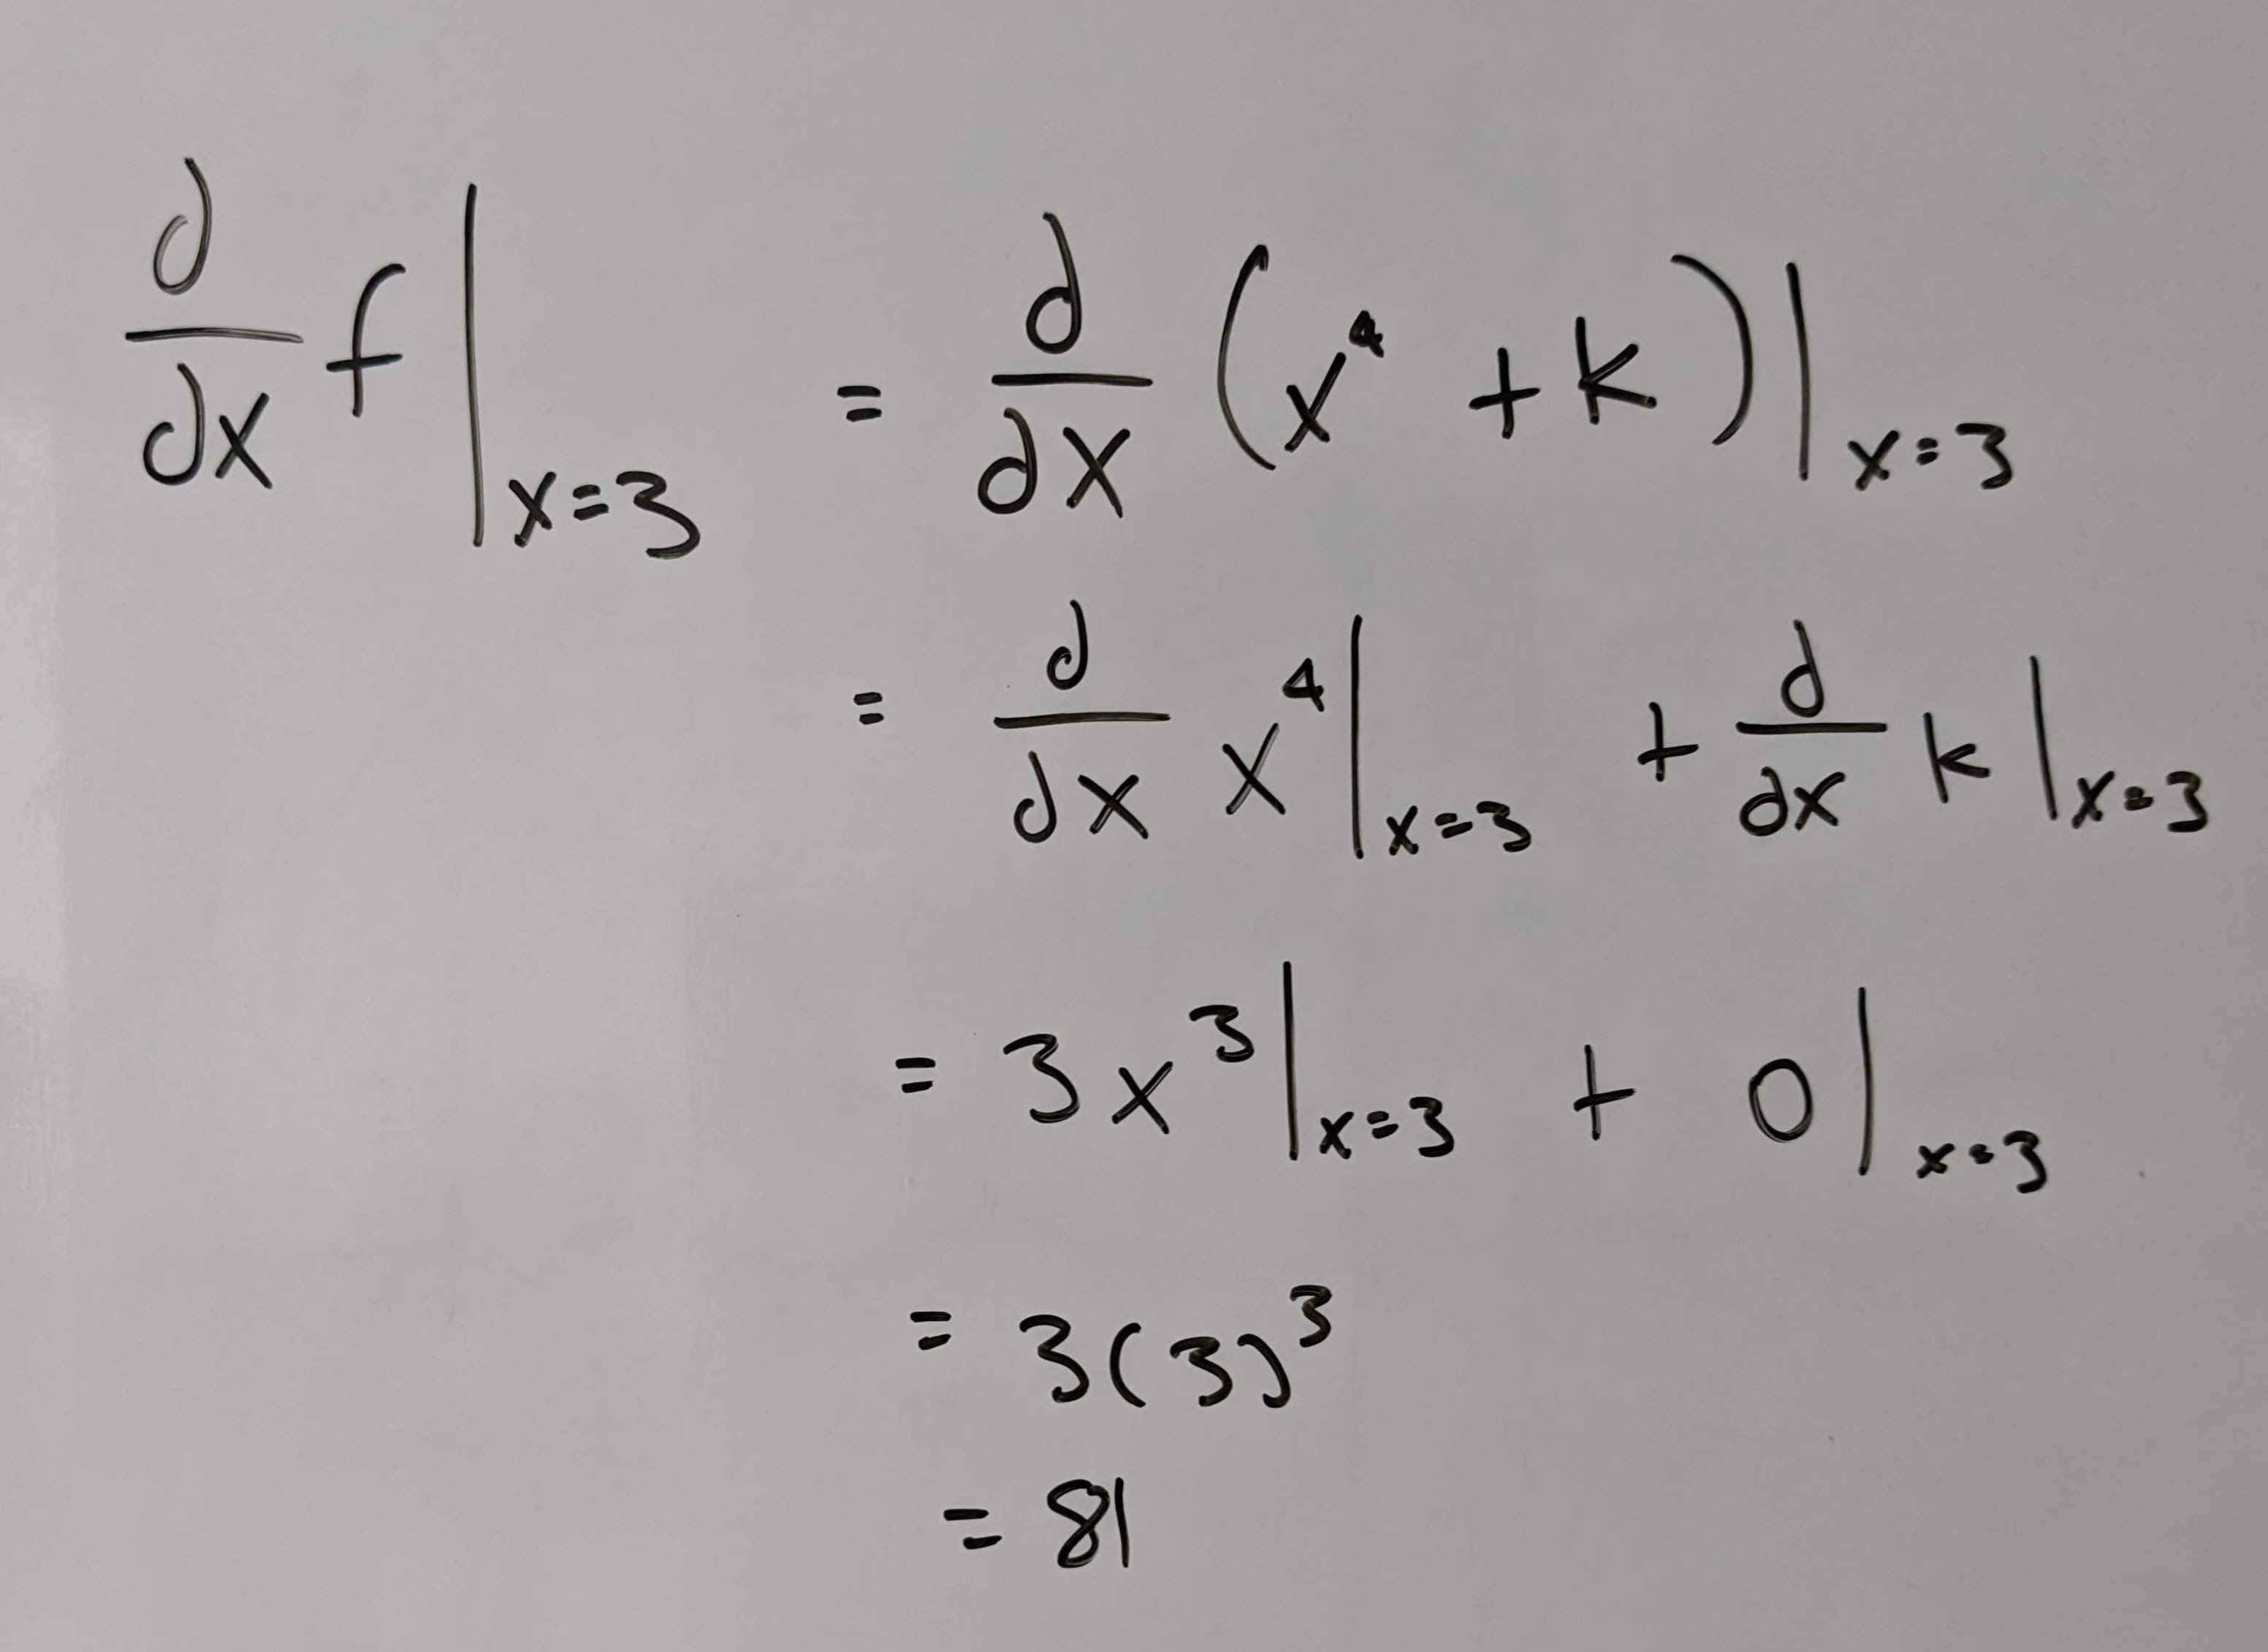 d/dx f|ₓ₌₃ = d/dx (x⁴ + k)|ₓ₌₃
= d/dx x⁴|ₓ₌₃ + d/dx k|ₓ₌₃
= 3x³|ₓ₌₃ + 0|ₓ₌₃
= 3(3)³
= 81